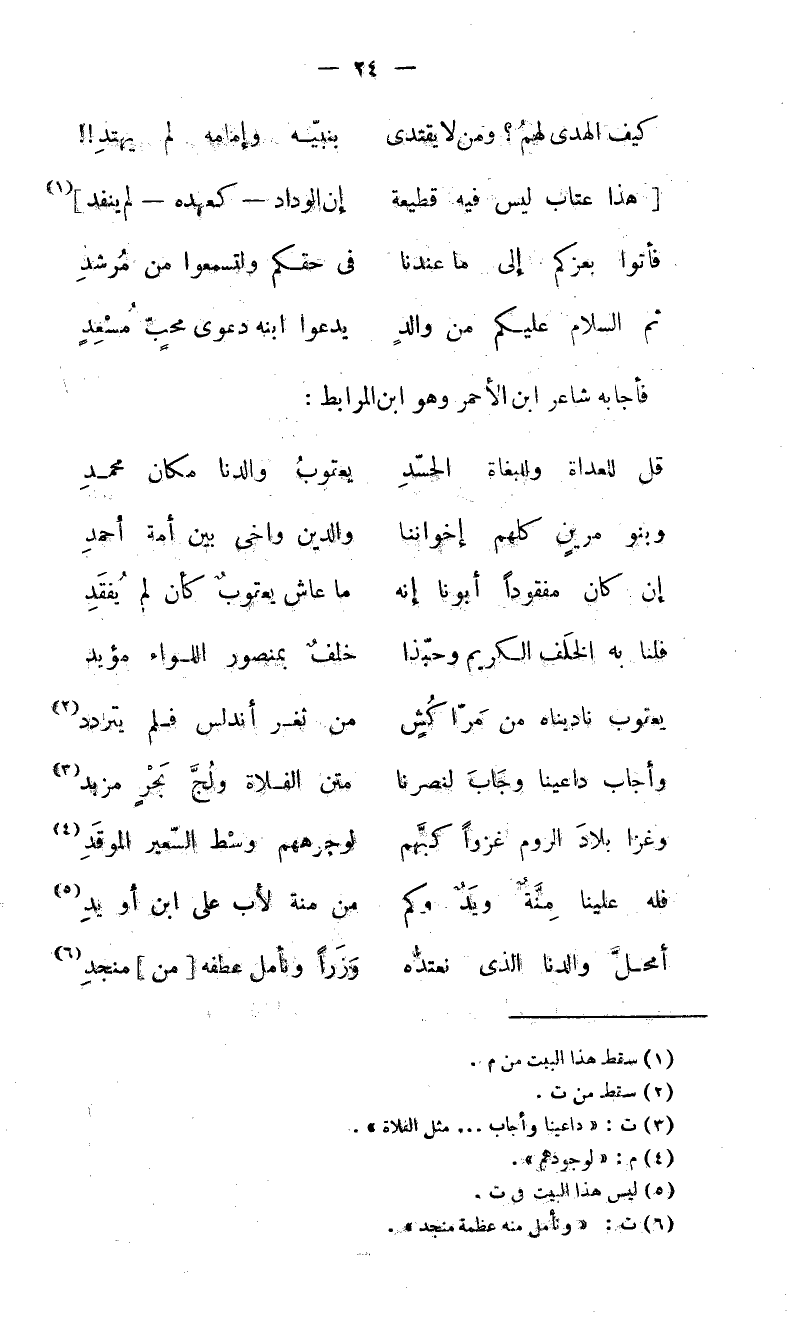 — ٢٤ —
كيف الهدى لهمُ؟ ومن لا يقتدى بنبيّـه وإمامه لم يهتدِ!!
[ هذا عتاب ليس فيه قطيعة إن الوداد — كعهده — لم ينفد ](١)
فأتوا بعزكم إلى ما عندنا فى حقـكم ولتسمعوا من مُرشدِ
ثم السلام عليـكم من والدٍ يدعوا ابنه دعوى محبٍّ مُسْعِدِ
فأجابه شاعر ابن الأحمر وهو ابن المرابط :
قل للعداة وللبغاة الحسّدِ يعقوبُ والدنا مكان محمـدِ
وبنو مرينٍ كلهم إخواننا والدين واخى بين أمة أحمدِ
إن كان مفقوداً أبونا إنه ما عاش يعقوبٌ كأن لم يُفقَدِ
فلنا به الخلَف الـكريم وحبّذا خلفٌ بمنصور اللـواء مؤيد
يعقوب ناديناه من مَرّاكُشٍ من ثغـر أندلس فـلم يتردد(٢)
وأجاب داعينا وجَابَ لنصرنا متن الفـلاة ولُجَّ بَحْرٍ مزبد(٣)
وغزا بلادَ الروم غزواً كبَّهم لوجوههم وسْط السّعير الموقَدِ(٤)
فله علينا مِنَّةٌ ويَدٌ وكم من منة لأب على ابن أو يدِ(٥)
أمحـلَّ والدنا الذى نعتدُّه وَزَراً ونأمل عطفه [ من ] منجدِ(٦)
(١) سقط هذا البيت من م .
(٢) سقط من ت .
(٣) ت : « داعينا وأجاب ... مثل الفلاة » .
(٤) م : « لوجودهم » .
(٥) ليس هذا البيت فى ت .
(٦) ت : « ونأمل منه عظمة منجد » .